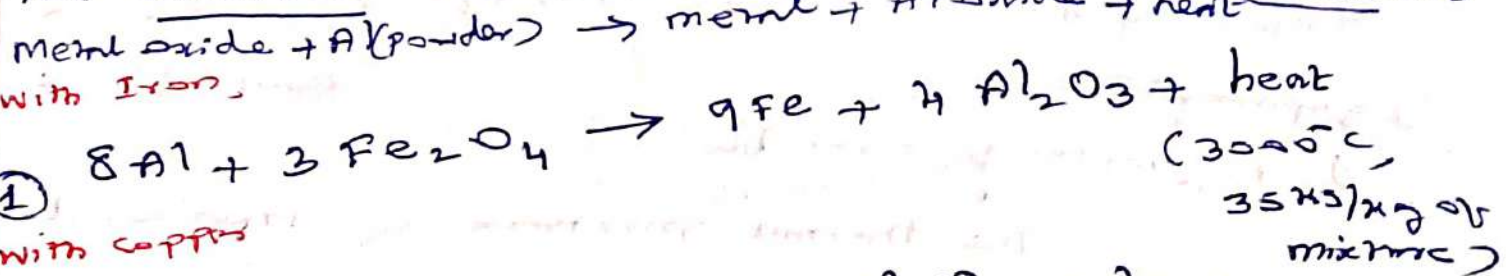 Metal oxide + Al(powder) → metal + + heat
with Iron,
① 8Al + 3 Fe₂O₄ → 9Fe + 4 Al₂O₃ + heat
(3000°C,
35 kJ/kg of
mixture)
with copper